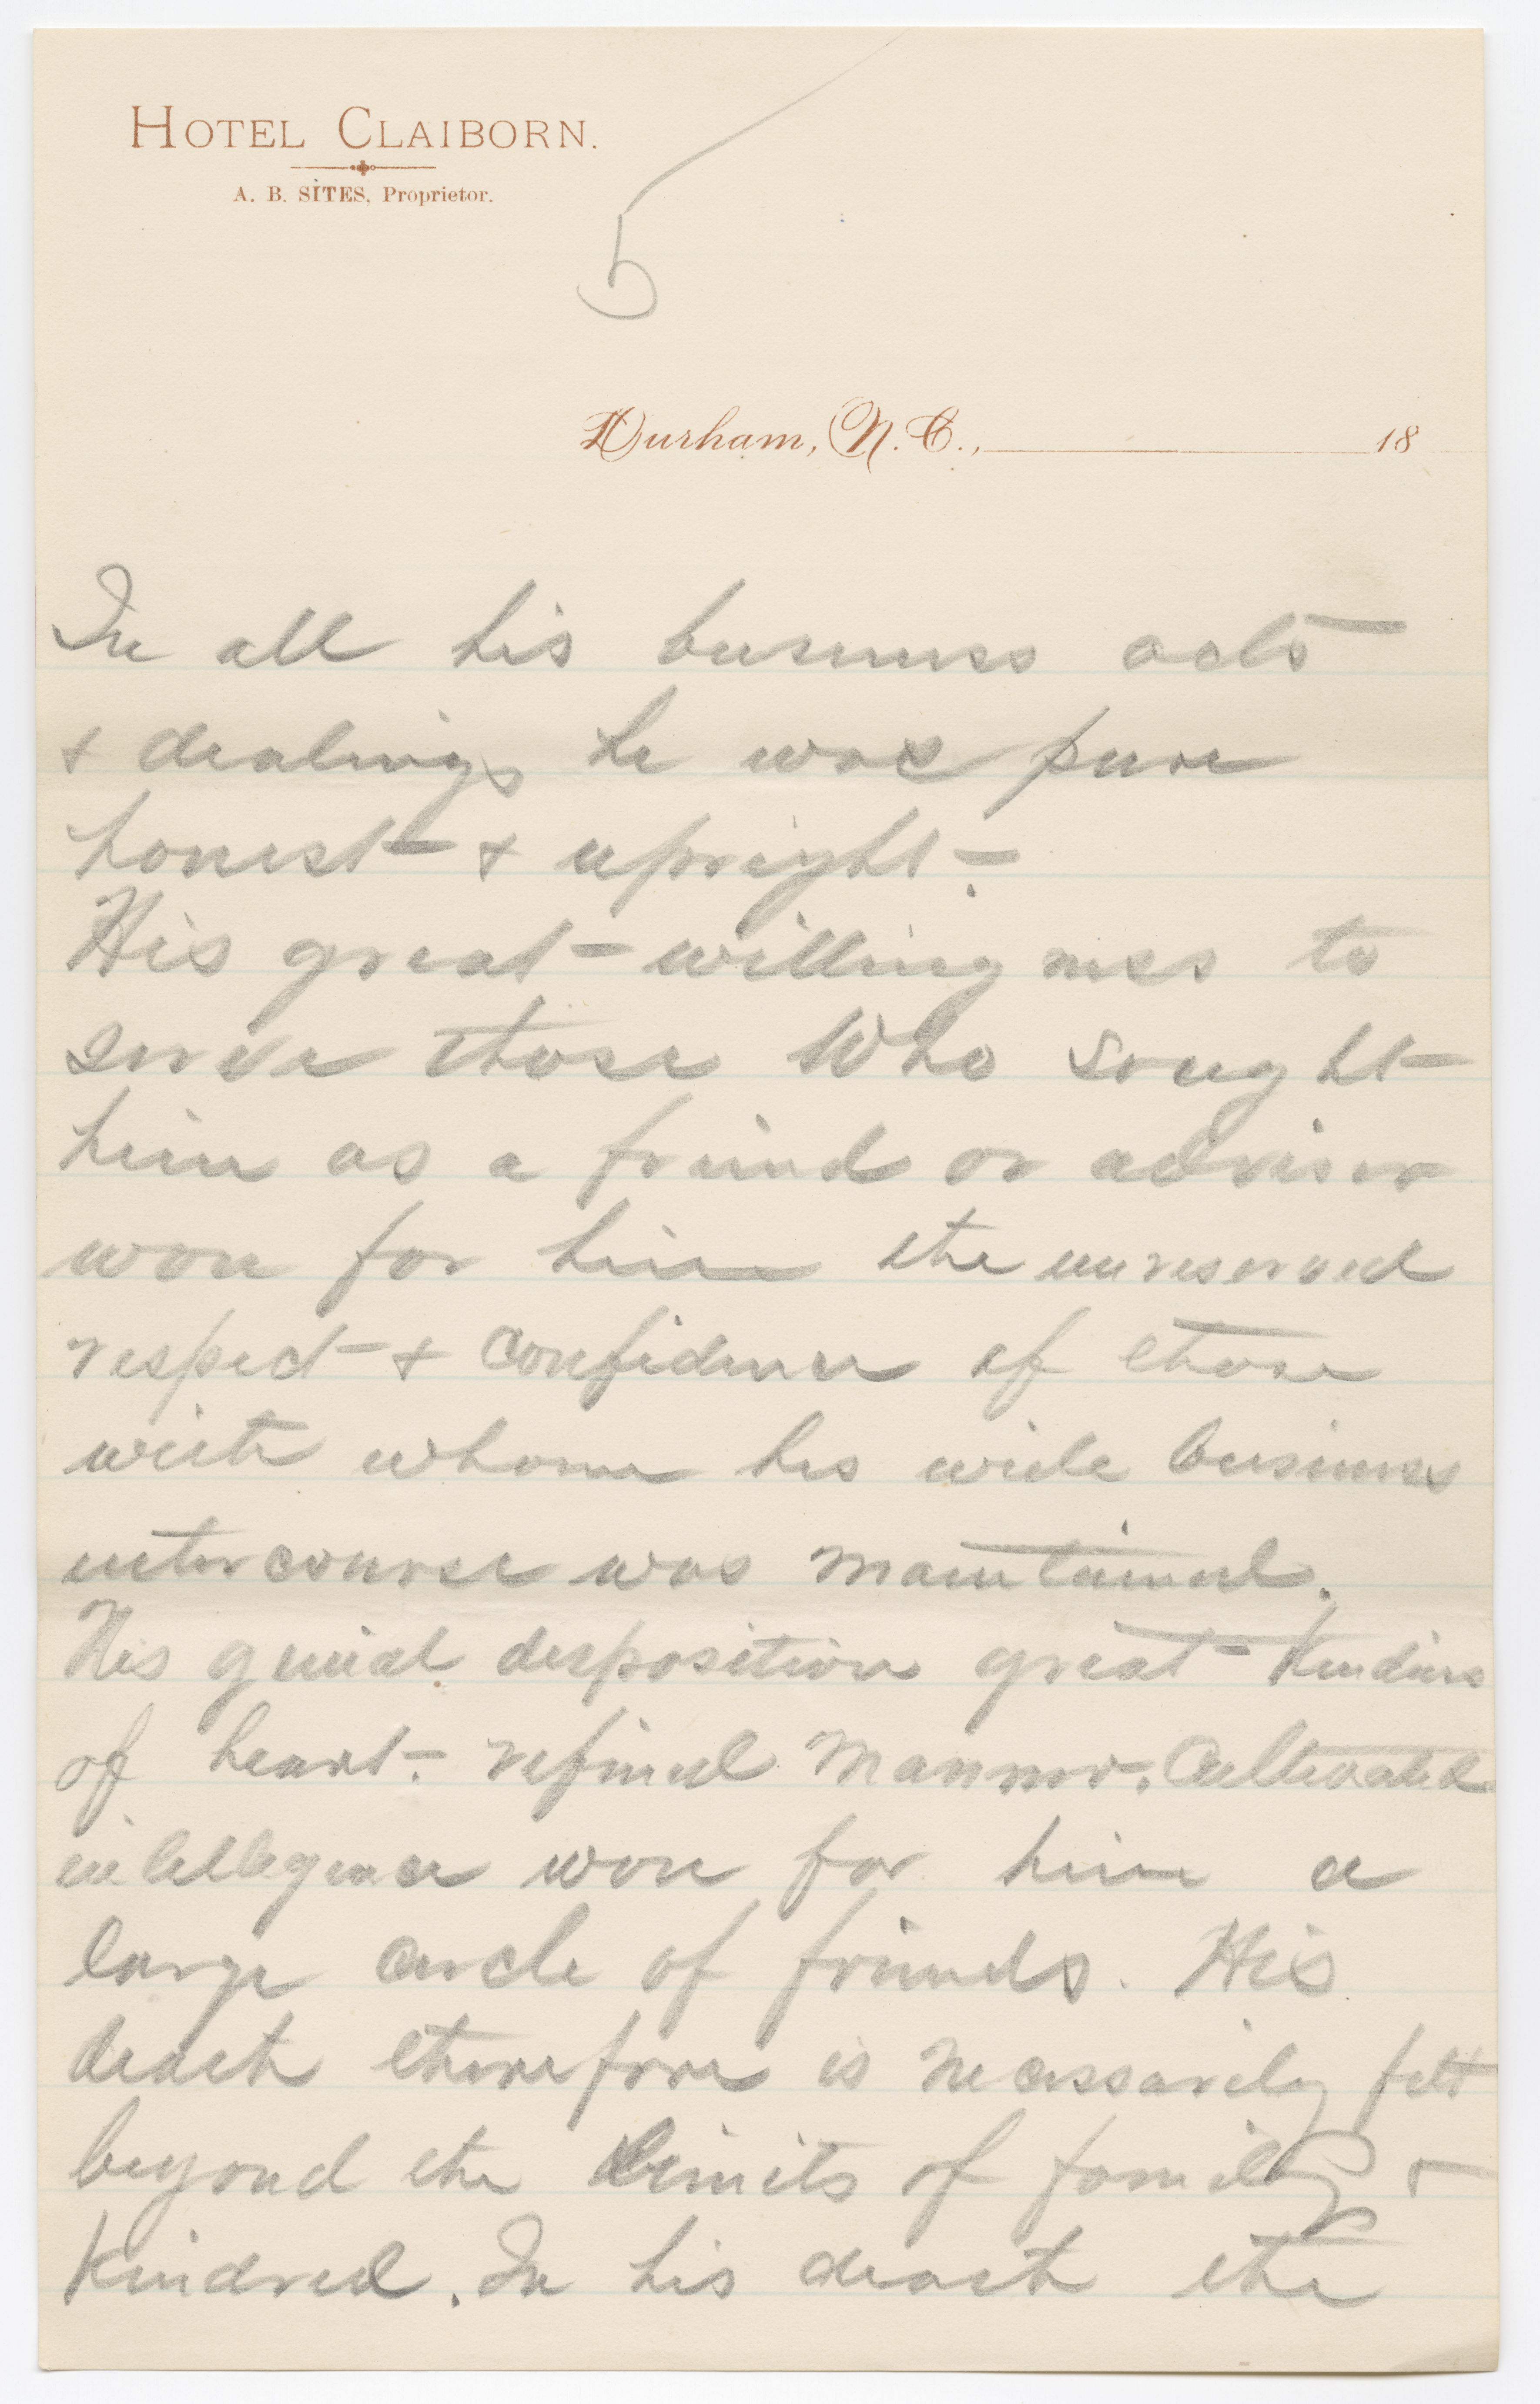 HOTEL CLAIBORN.
A. B. SITES, Proprietor.
5
Durham, N. C., 18
In all his business acts
& dealings he was pure
honest & upright.
His great willingness to
serve those who sought
him as a friend or adviser
won for him the unreserved
respect & confidence of those
with whom his wide business
intercourse was maintained.
His genial disposition great kindness
of heart. refined manner. Cultivated
intelligence won for him a
large circle of friends. His
death therefore is necessarily felt
beyond the limits of family &
kindred. In his death the